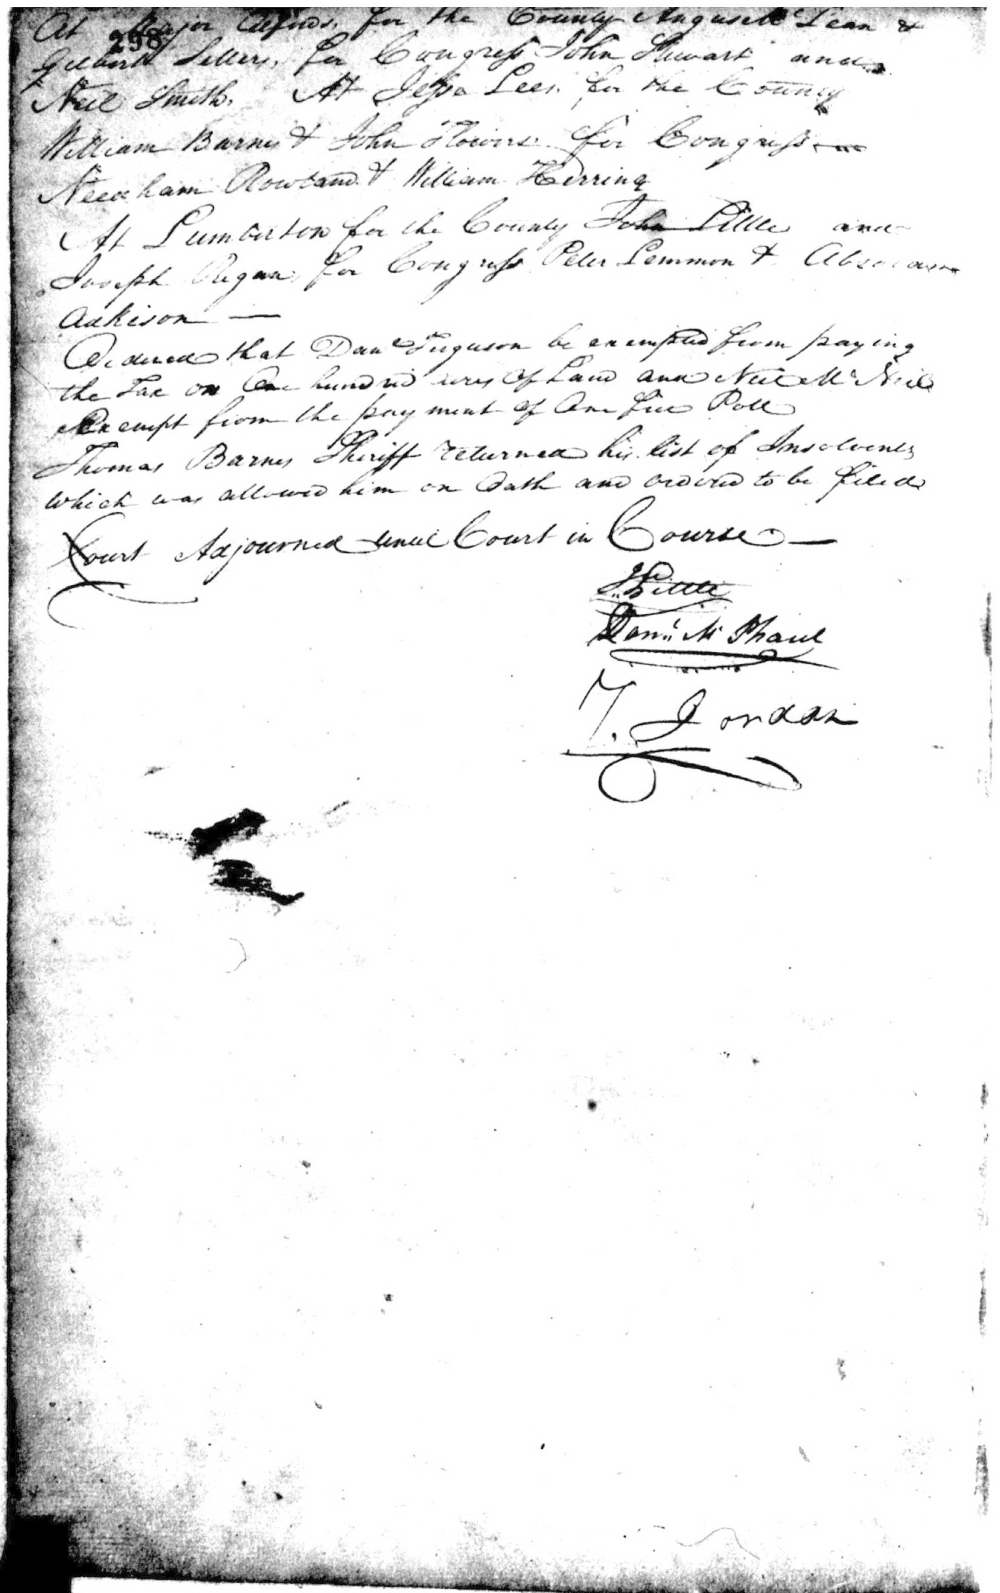 258
At Major for the County Angus McLean &
Gilbert Sellers. for Congress John Stewart and
Neil Smith. At Jesse Lees. for the County
William Barnes & John Flowers for Congress
Needham Rowland & William Herring
At Lumberton for the County John Little and
Joseph Regan for Congress Peter Lemmon & Absolam
Adkison —
Ordered that Danl Ferguson be exempted from paying
the Tax on One hundred acres of Land and Neil McNeil
Exempt from the payment of One free Poll
Thomas Barnes Sheriff returned his list of Insolvents
which was allowed him on Oath and ordered to be filed
Court Adjourned until Court in Course —
J. Little
Danl. Mc Phaul
J. Jordan